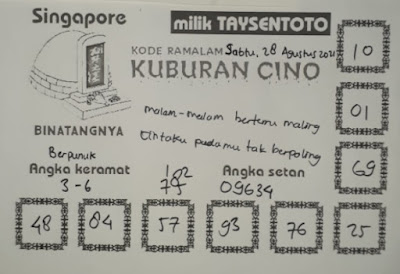 Singapore
milik TAYSENTOTO
KODE RAMALAM Sabtu, 28 Agustus 2021
KUBURAN CINO
10
malam-malam bertemu maling
01
Cintaku padamu tak berpaling
BINATANGNYA
Berpunuk
Angka keramat
3-6
Angka setan
09634
69
48
84
57
93
76
25